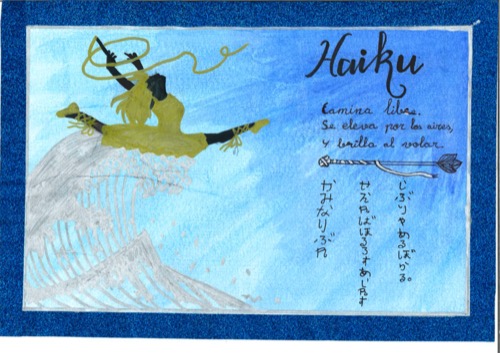 Haiku
Camina libre,
Se eleva por los aires,
Y brilla al volar.
かみなりぶれ
せえればぽるろすあいれす
じぶりやあるばらる。